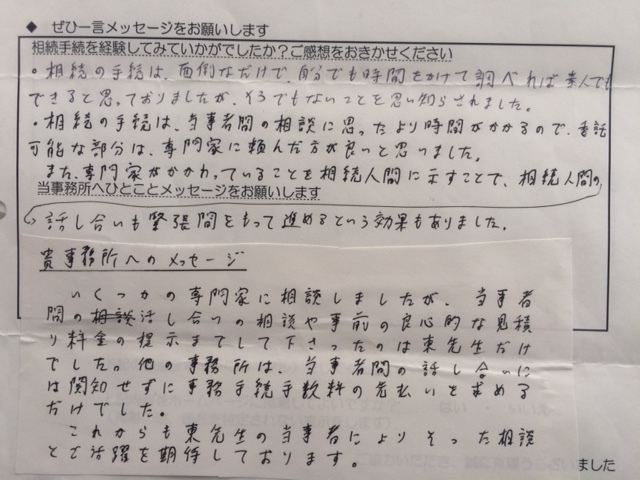 ◆ ぜひ一言メッセージをお願いします
相続手続を経験してみていかがでしたか?ご感想をおきかせください
・相続の手続は、面倒なだけで、自分でも時間をかけて調べれば素人でも
できると思っておりましたが、そうでもないことを思い知らされました。
・相続の手続は、当事者間の相談に思ったより時間がかかるので、委託
可能な部分は、専門家に頼んだ方が良いと思いました。
また、専門家がかかわっていることを相続人間に示すことで、相続人間の
当事務所へひとことメッセージをお願いします
話し合いも緊張間をもって進めるという効果もありました。
貴事務所へのメッセージ
いくつかの専門家に相談しましたが、当事者
間の相談話し合いの相談や事前の良心的な見積
り料金の提示までして下さったのは東先生だけ
でした。他の事務所は、当事者間の話し合いに
は関知せずに事務手続手数料の先払いを求める
だけでした。
これからも東先生の当事者によりそった相談
とご活躍を期待しております。
ました